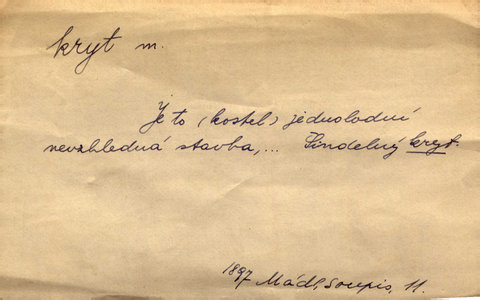 kryt m.
Je to (kostel) jednolodní
nevzhledná stavba,... Šindelný kryt.
1897 Mádl, Soupis, 11.